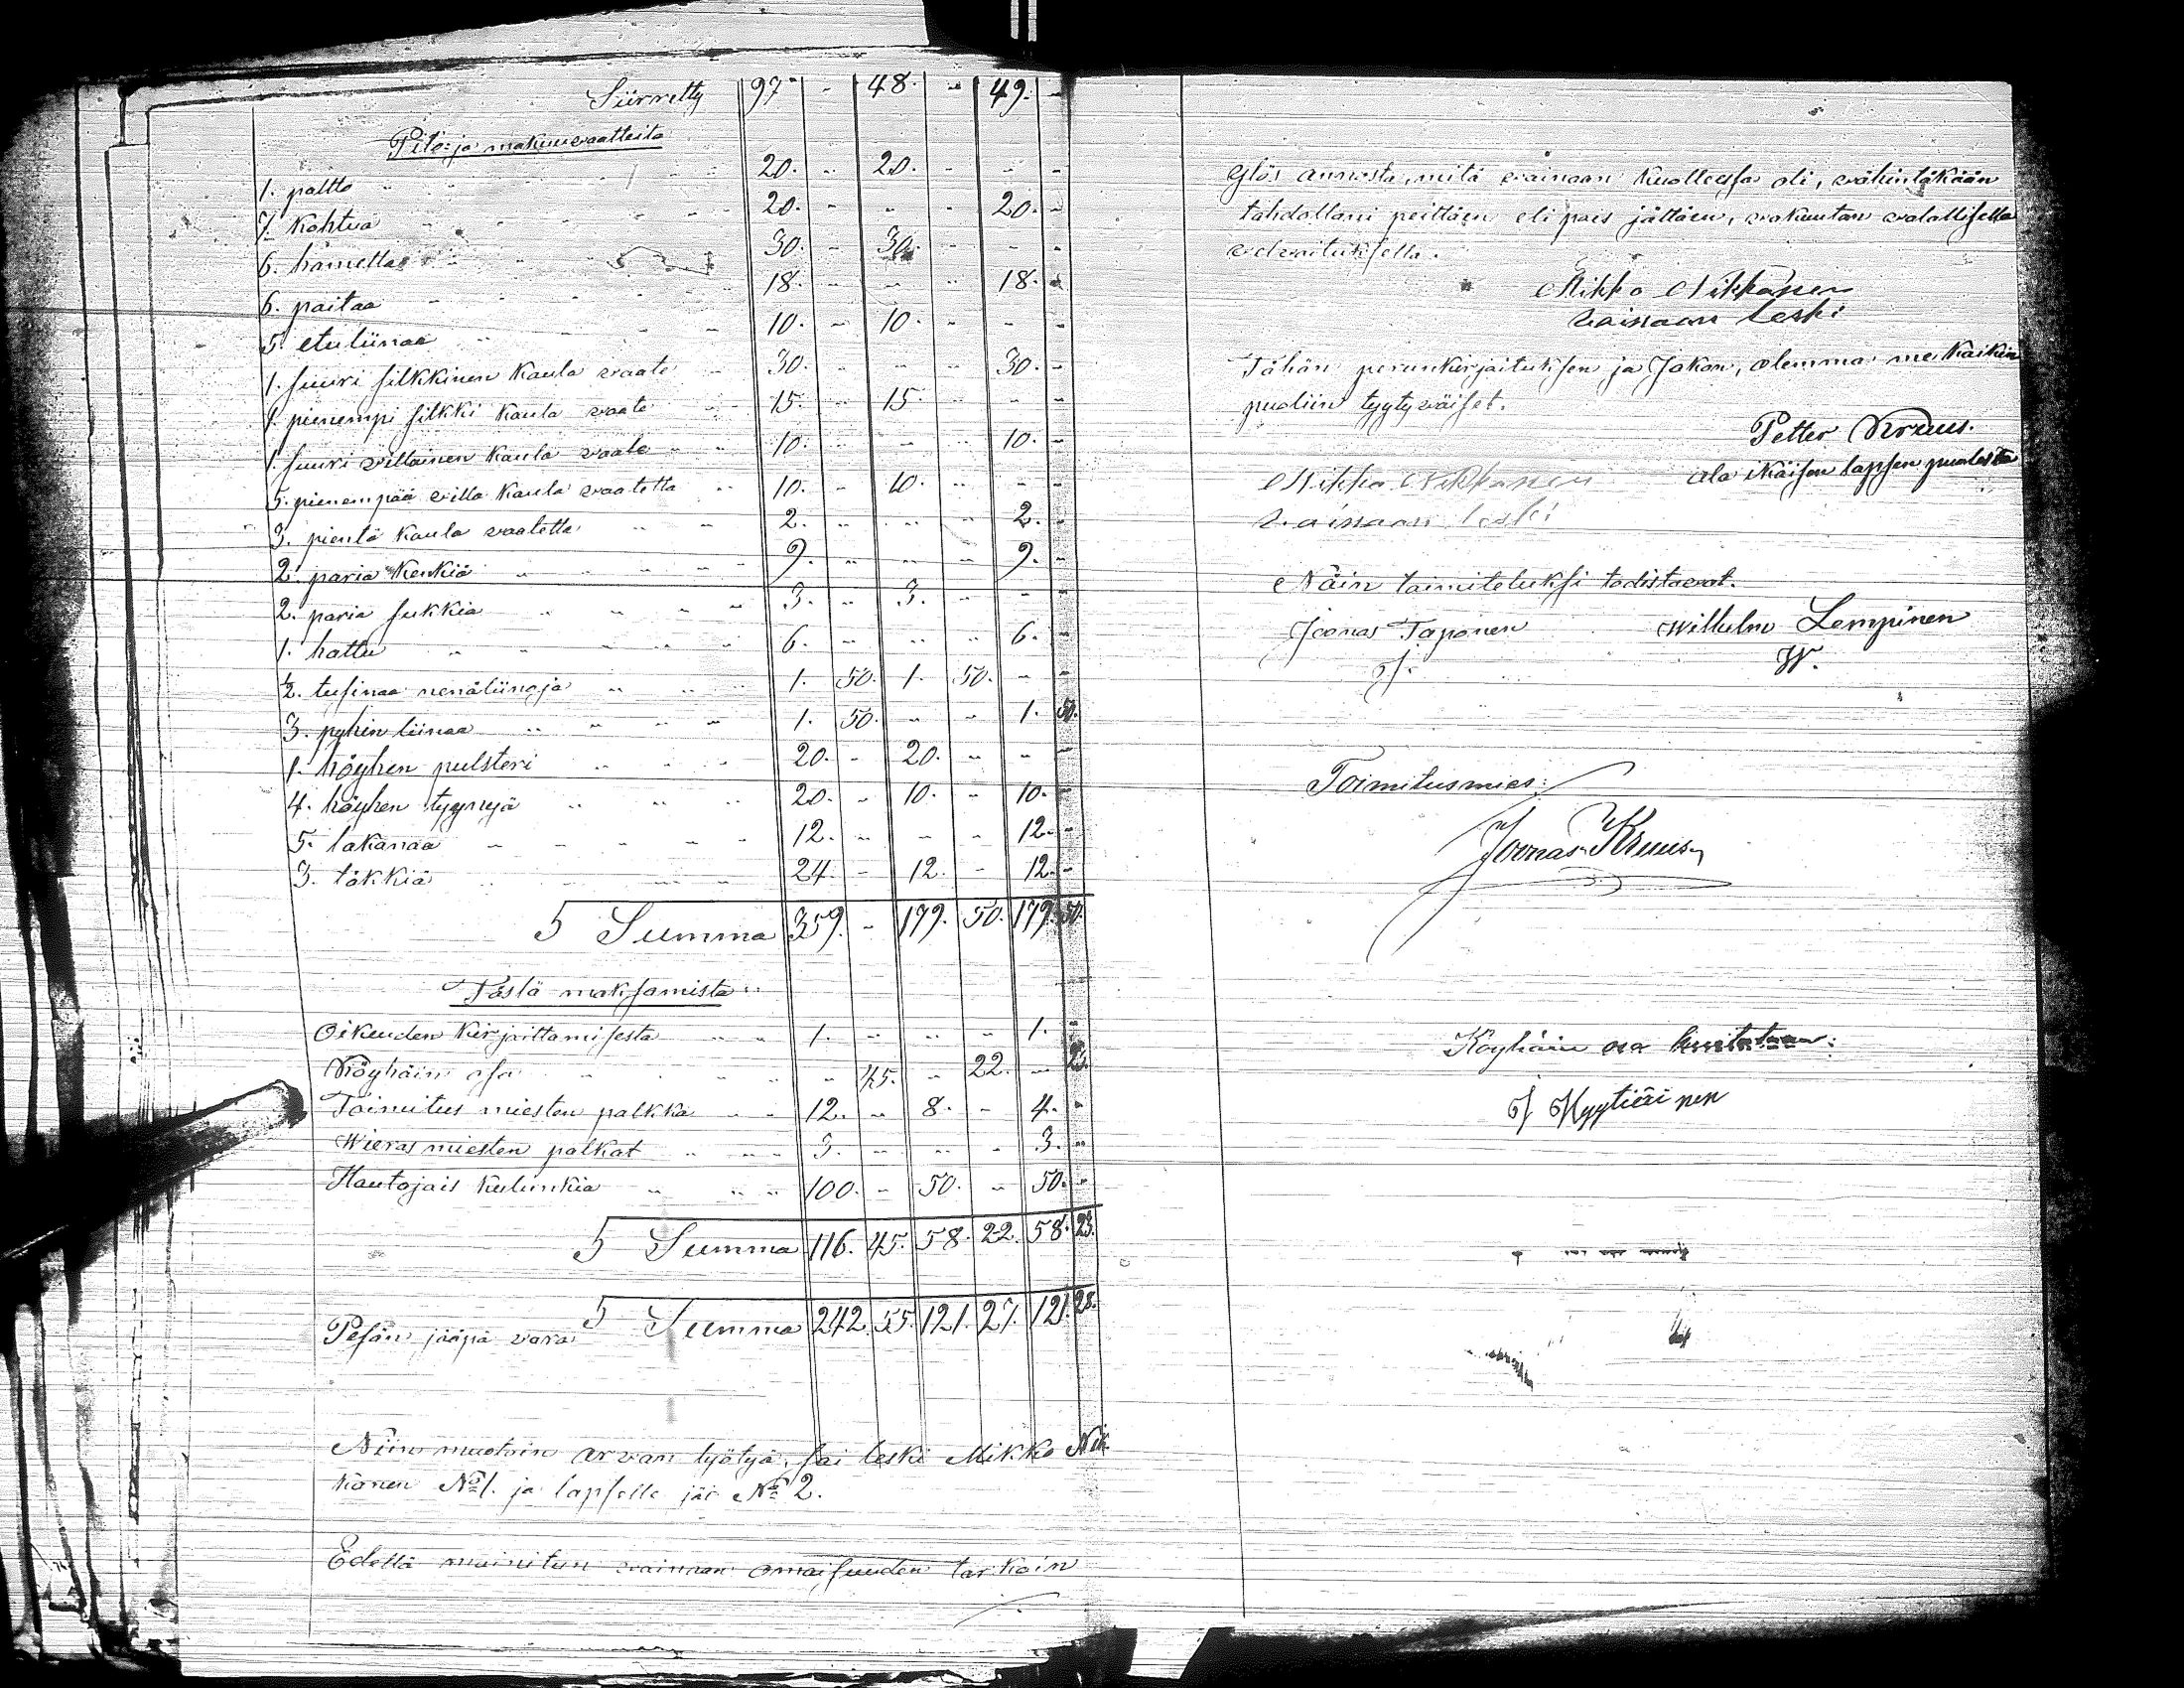 Siirretty 97. - 48. - 49. -
Pito- ja makuuvaatteita
1. paltto 20. - 20. - - -
7. kohtua 20. - - - 20. -
6. hametta 30. - 30. - - -
6. paitaa 18. - - - 18. -
5. etuliinaa 10. - 10. - - -
1. suuri silkkinen kaula vaate 30. - - - 30. -
1. pienempi silkki kaula vaate 15. - 15. - - -
1. suuri villainen kaula vaate 10. - - - 10. -
5. pienempää villa kaula vaatetta 10. - 10. - - -
3. pientä kaula vaatetta 2. - - - 2. -
2. paria kenkiä 9. - - - 9. -
2. paria sukkia 3. - 3. - - -
1. hattu 6. - - - 6. -
½. tusinaa nenäliinoja 1. 50. 1. 50. - -
3. pyhin liinaa 1. 50. - - 1. 50.
1. höyhen pulsteri 20. - 20. - - -
4. höyhen tyynyjä 20. - 10. - 10. -
5. lakanaa 12. - - - 12. -
3. täkkiä 24. - 12. - 12. -
Summa 359. - 179. 50. 179. 50.
Tästä maksamista
Oikeuden kirjoittamisesta 1. - - - 1. -
Köyhäin osa - 45. - 22. - 23.
Toimitus miesten palkka 12. - 8. - 4. -
Wieras miesten palkat 3. - - - 3. -
Hautajais kulunkia 100. - 50. - 50. -
Summa 116. 45. 58. 22. 58. 23.
Pesän jääpä vara Summa 242. 55. 121. 27. 121. 28.
Niin muotoin arvan lyötyä, sai leski Mikko Nik-
kanen No 1. ja lapselle jäi No 2.
Edellä mainitun vainaan omaisuuden tarkoin
ylös annosta, mitä vainaan kuolleessa oli, vähintäkään
tahdollani peittäen eli pois jättäen, vakuutan valallisella
velvoituksella.
Mikko Nikkanen
vainaan leski
Tähän perunkirjoituksen ja Jakon, olemma me kaikin
puoliin tyytyväiset.
Petter Kruus.
Mikko Nikkanen ala ikäisen lapsen puolesta
vainaan leski
Näin toimitetuksi todistavat.
Joonas Taponen Willulm Lempinen
J. W.
Toimitusmies:
Joonas Kruus
Köyhäin osa kuitataan:
J Hyytiäinen